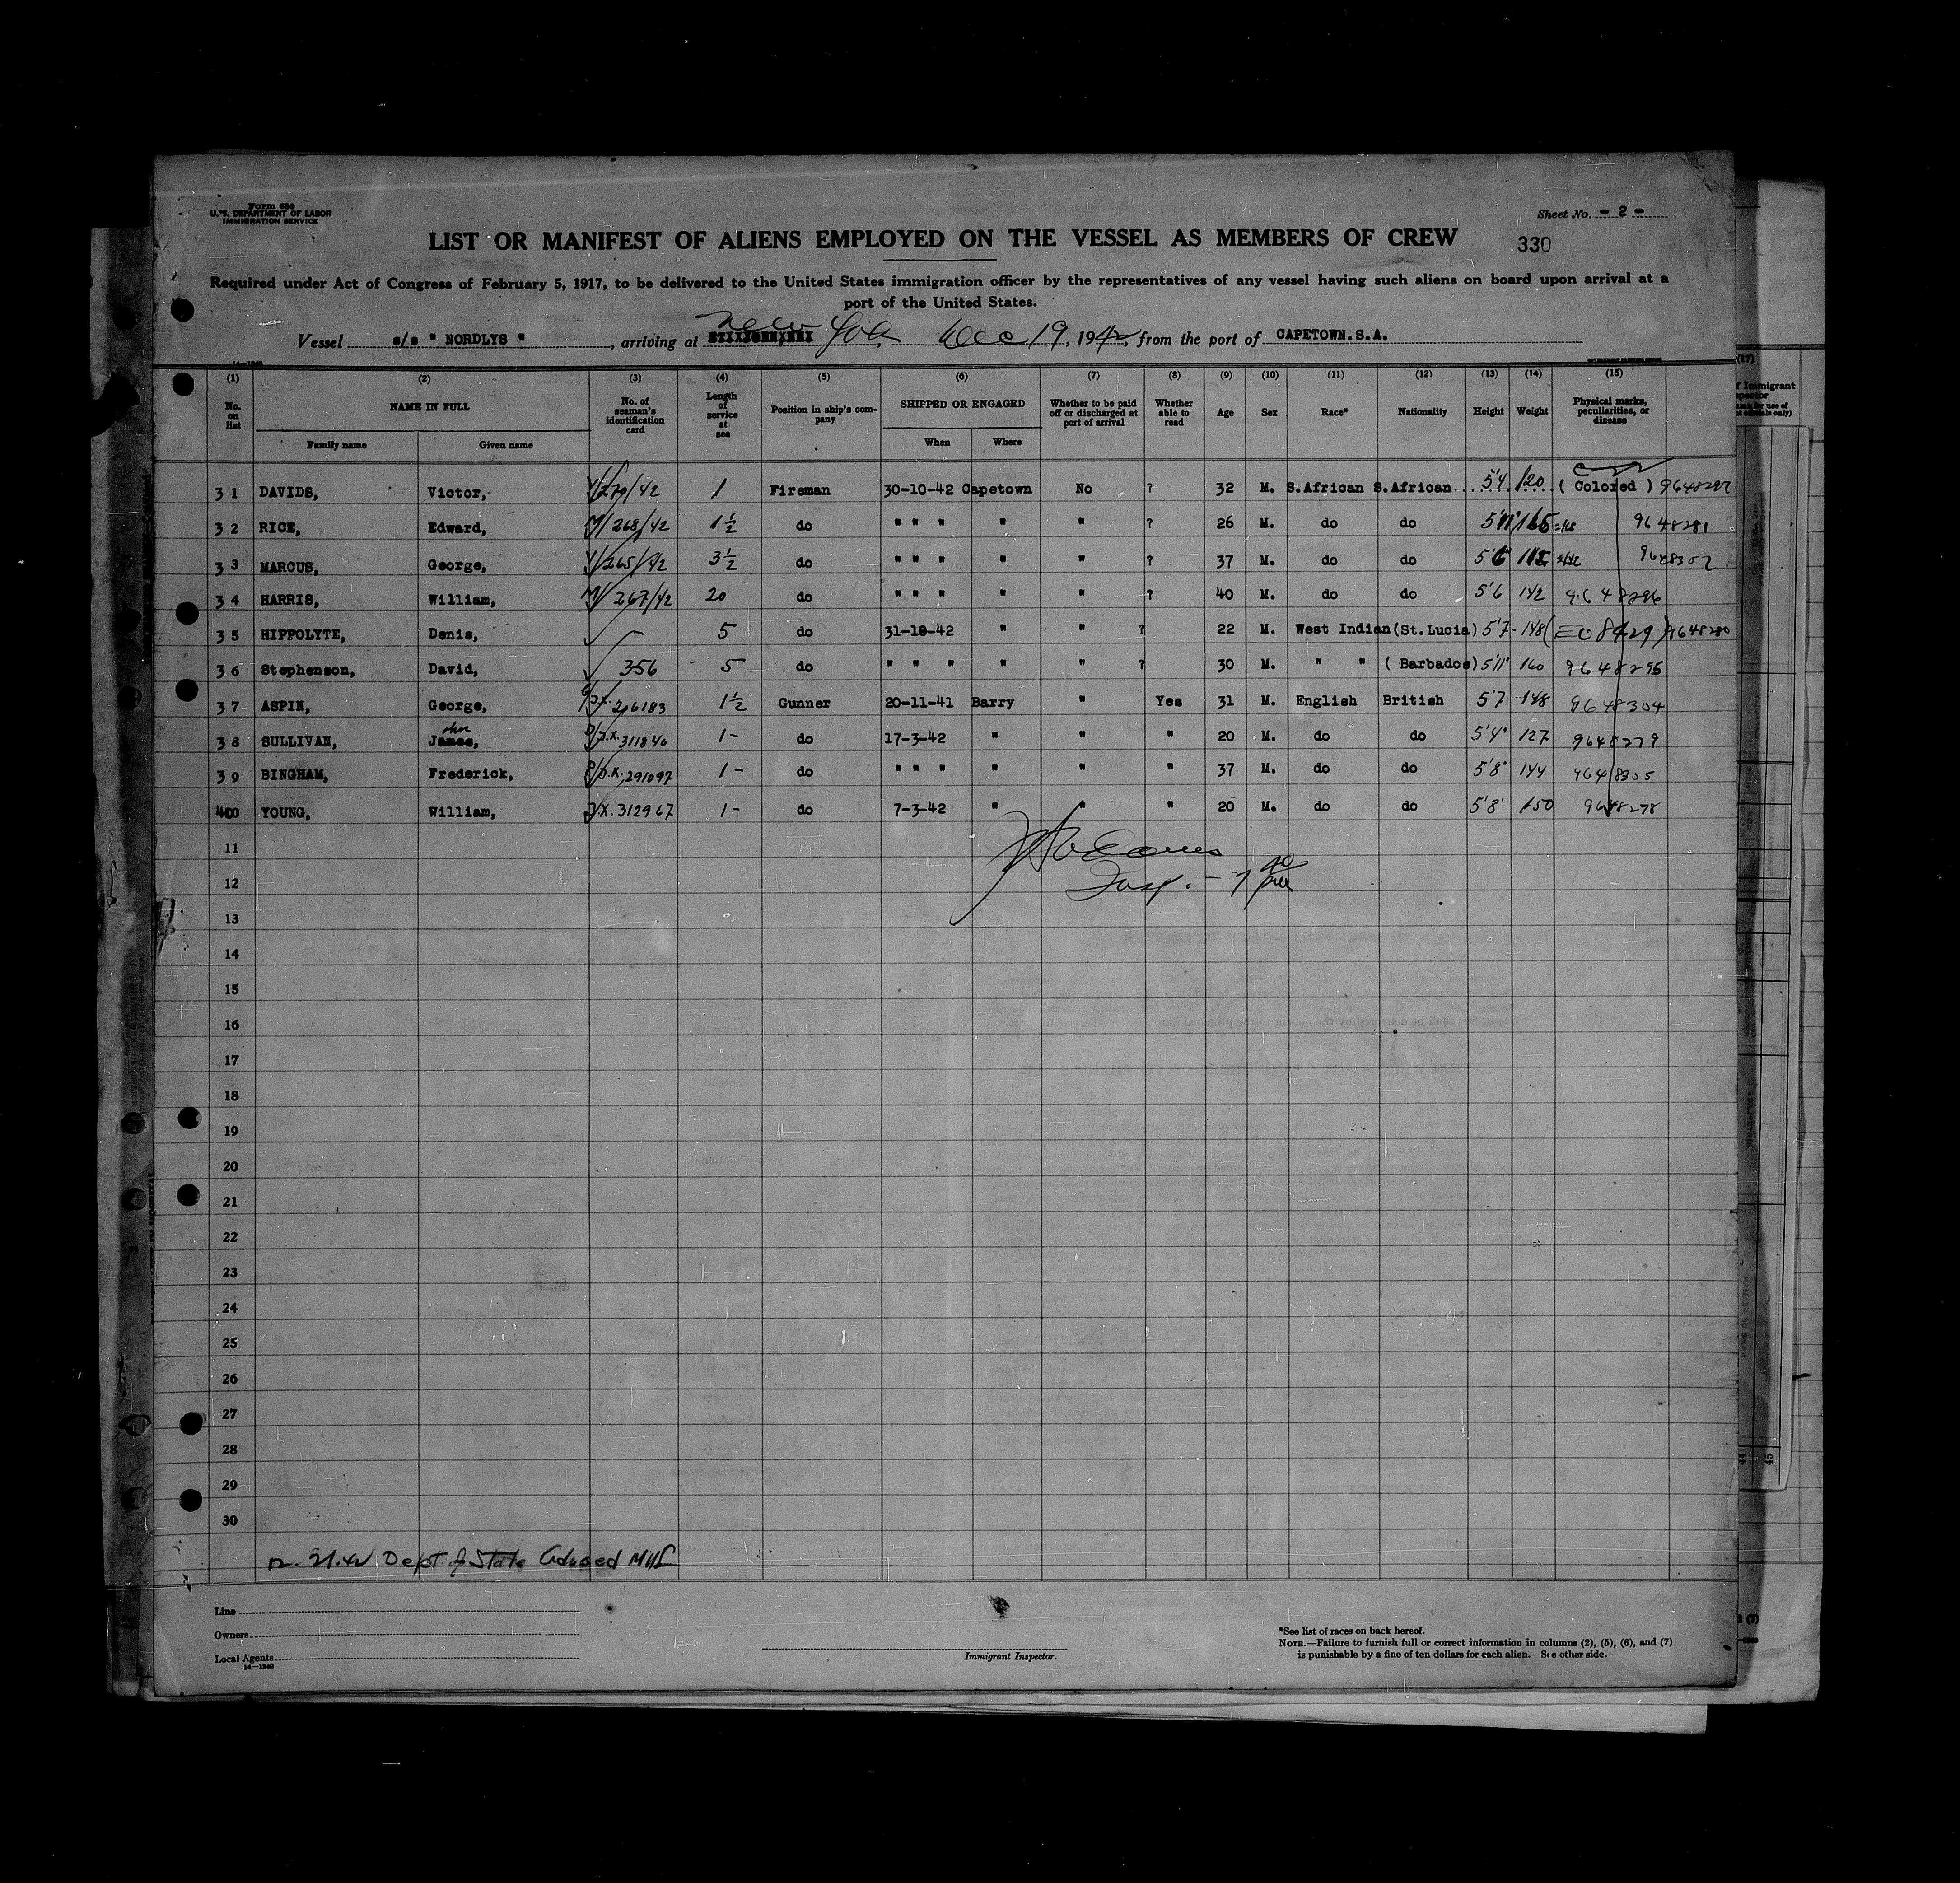 Form 680
U. S. DEPARTMENT OF LABOR
IMMIGRATION SERVICE
Sheet No. - 2 -
LIST OR MANIFEST OF ALIENS EMPLOYED ON THE VESSEL AS MEMBERS OF CREW
330
Required under Act of Congress of February 5, 1917, to be delivered to the United States immigration officer by the representatives of any vessel having such aliens on board upon arrival at a
port of the United States.
Vessel s/s " NORDLYS ", arriving at New York, Dec 19, 1942, from the port of CAPETOWN.S.A.
(1) (2) (3) (4) (5) (6) (7) (8) (9) (10) (11) (12) (13) (14) (15)
No. on list NAME IN FULL Family name Given name No. of seaman's identification card Length of service at sea Position in ship's company SHIPPED OR ENGAGED When Where Whether to be paid off or discharged at port of arrival Whether able to read Age Sex Race* Nationality Height Weight Physical marks, peculiarities, or disease
31 DAVIDS, Victor, 279/42 1 Fireman 30-10-42 Capetown No ? 32 M. S.African S.African 5'4 120 ( Colored )
32 RICE, Edward, 268/42 1½ do " " " " " ? 26 M. do do 5'11" 165 9648281
33 MARCUS, George, 265/42 3½ do " " " " " ? 37 M. do do
34 HARRIS, William, 267/42 20 do " " " " " ? 40 M. do do 5'6 142 9648296
35 HIPPOLYTE, Denis, 5 do 31-10-42 " " ? 22 M. West Indian (St.Lucia) 5'7 - 148 9648280
36 Stephenson, David, 356 5 do " " " " " ? 30 M. " " ( Barbados) 5'11" 160 9648295
37 ASPIN, George, 206183 1½ Gunner 20-11-41 Barry " Yes 31 M. English British 5'7 148 9648304
38 SULLIVAN, John James, J.X. 311846 1- do 17-3-42 " " " 20 M. do do 5'4" 127 9648279
39 BINGHAM, Frederick, J.X. 291097 1- do " " " " " " 37 M. do do 5'8" 144 9648305
40 YOUNG, William, J.X. 312967 1- do 7-3-42 " " " 20 M. do do 5'8' 150 9648278
11
12
13
14
15
16
17
18
19
20
21
22
23
24
25
26
27
28
29
30
Dept of State Advised
Line
Owners
Local Agents
14-1240
Immigrant Inspector.
*See list of races on back hereof.
NOTE.—Failure to furnish full or correct information in columns (2), (5), (6), and (7)
is punishable by a fine of ten dollars for each alien. See other side.